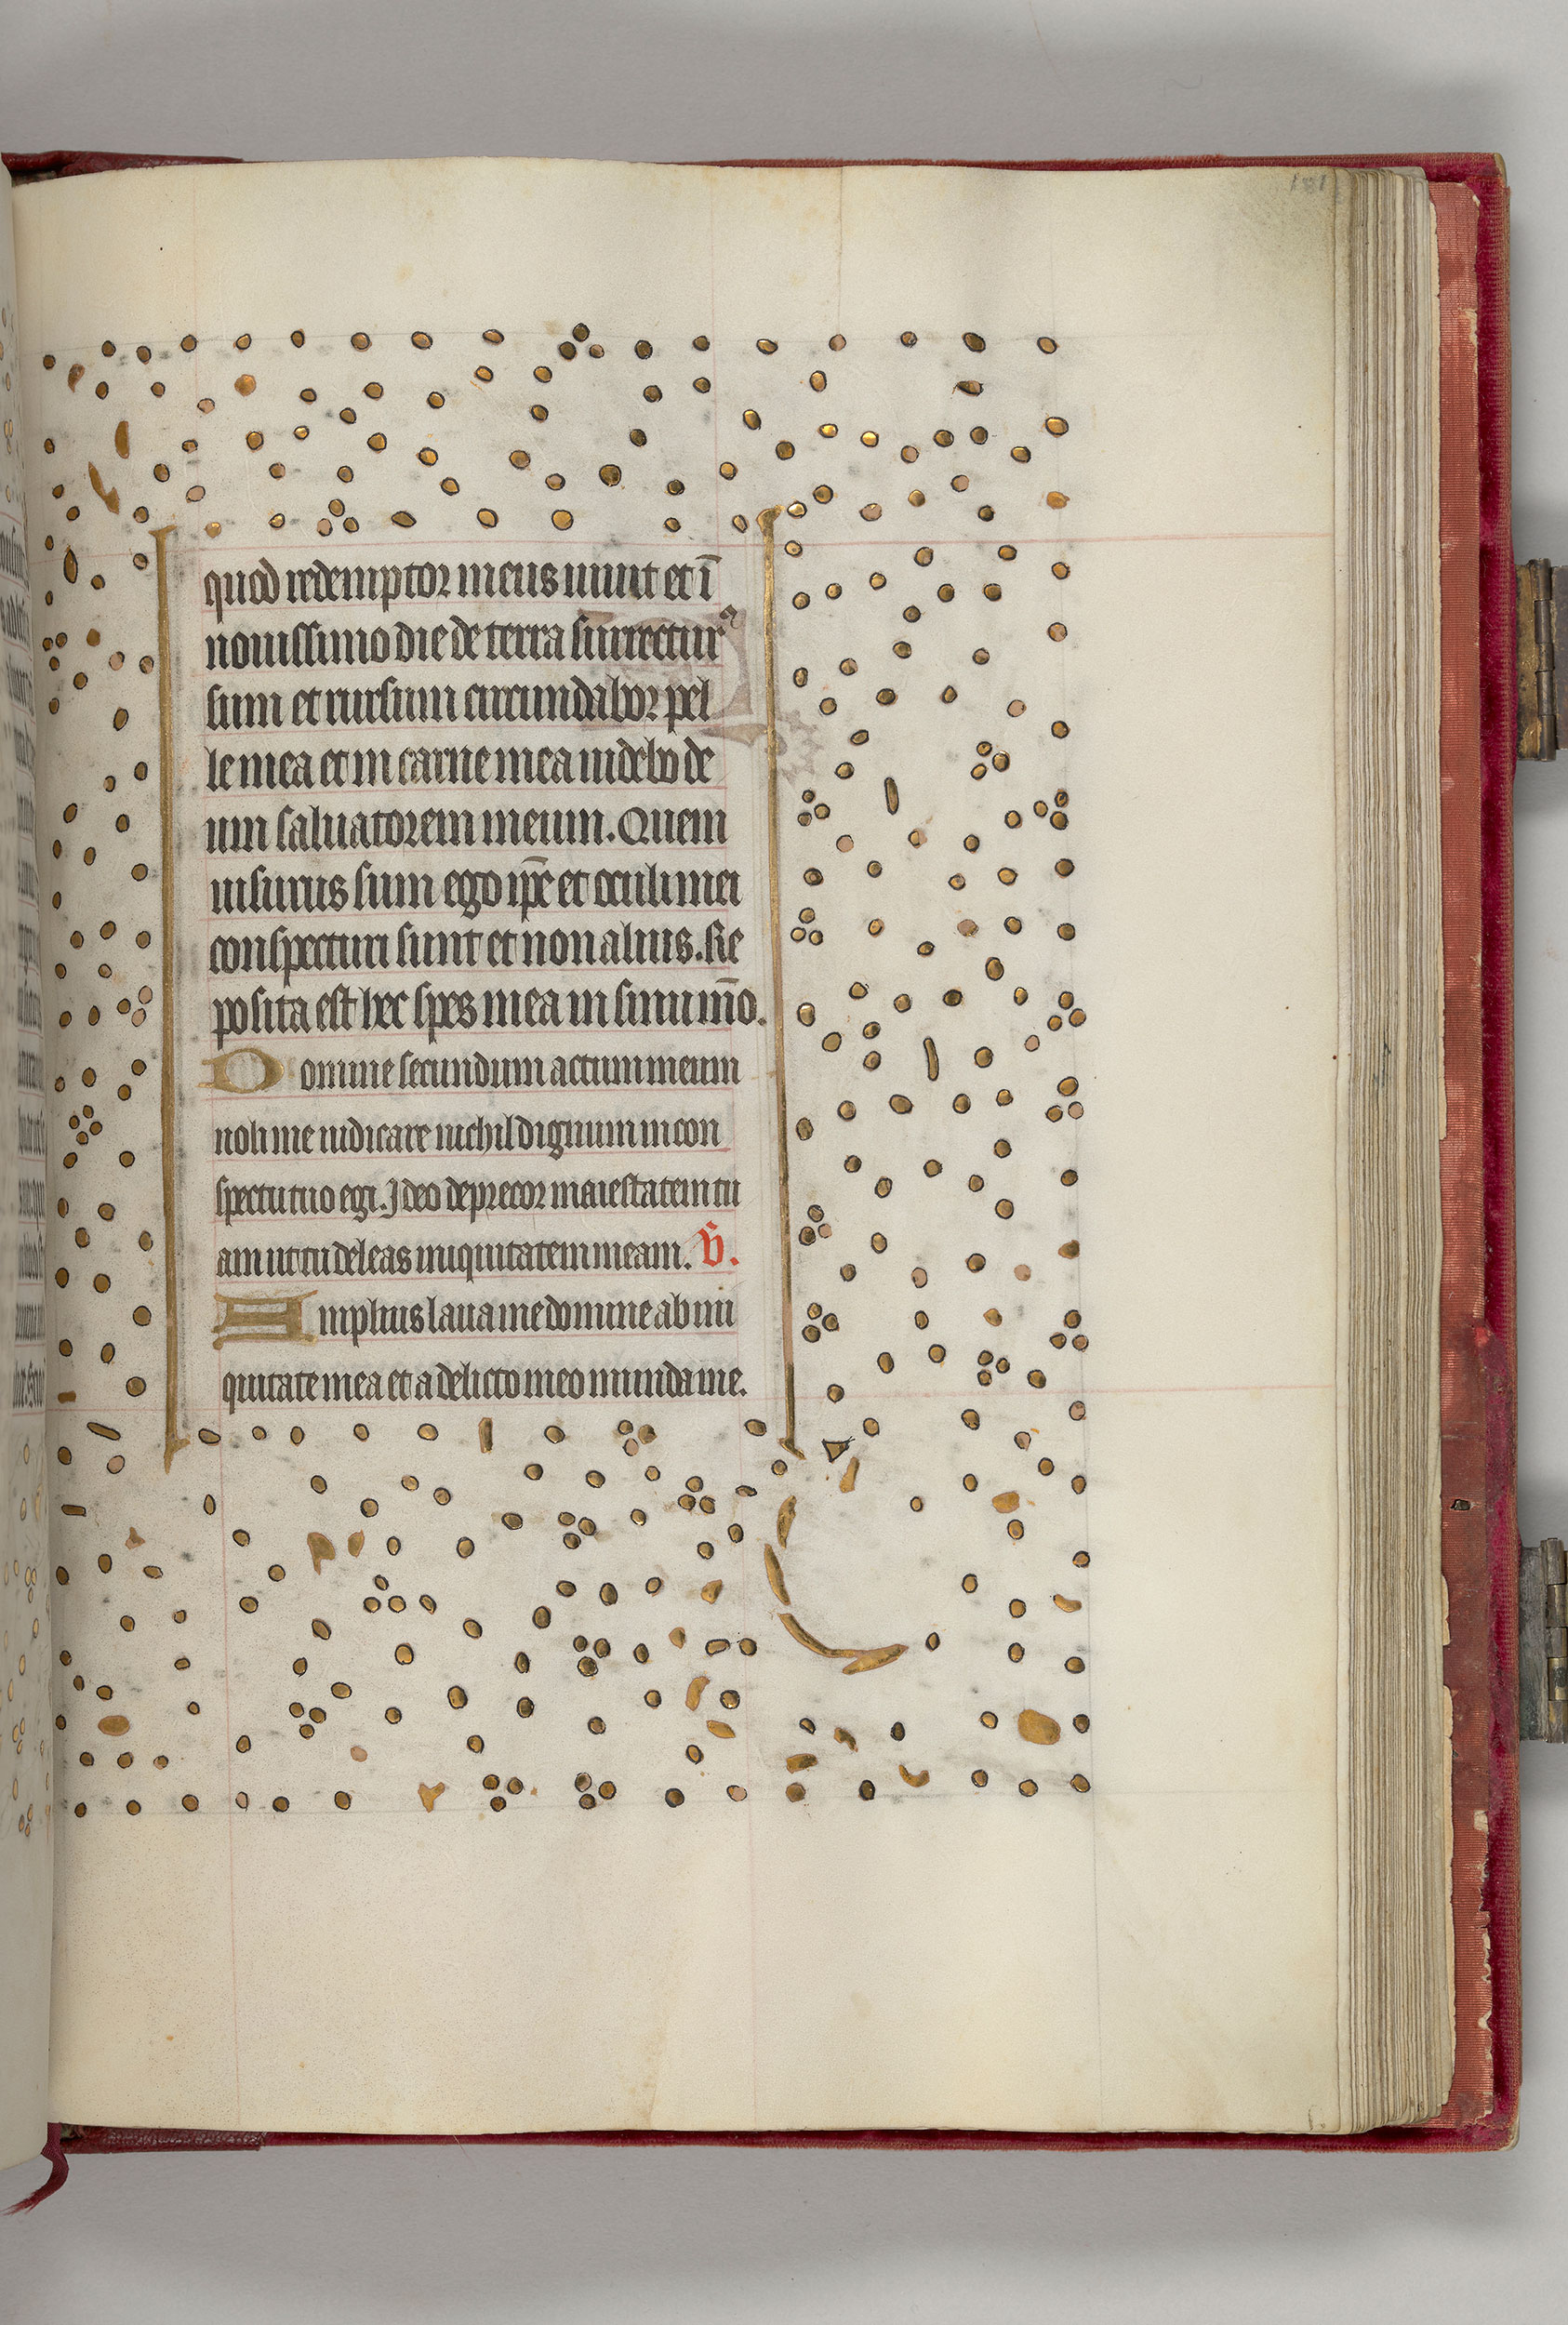 181
quod redemptor meus uiuit et ī
nouissimo die de terra surrectur⁹
sum et rursum circumdabor pel
le mea et in carne mea uidebo de
um saluatorem meum. Quem
uisurus sum ego ip̄e et oculi mei
conspecturi sunt et non alius. Re
posita est hec spes mea in sinu m̄o.
Domine secundum actum meum
noli me iudicare nichil dignum in con
spectu tuo egi. Ideo deprecor maiestatem tu
am ut tu deleas iniquitatem meam. V̄.
Amplius laua me domine ab ini
quitate mea et a delicto meo munda me.